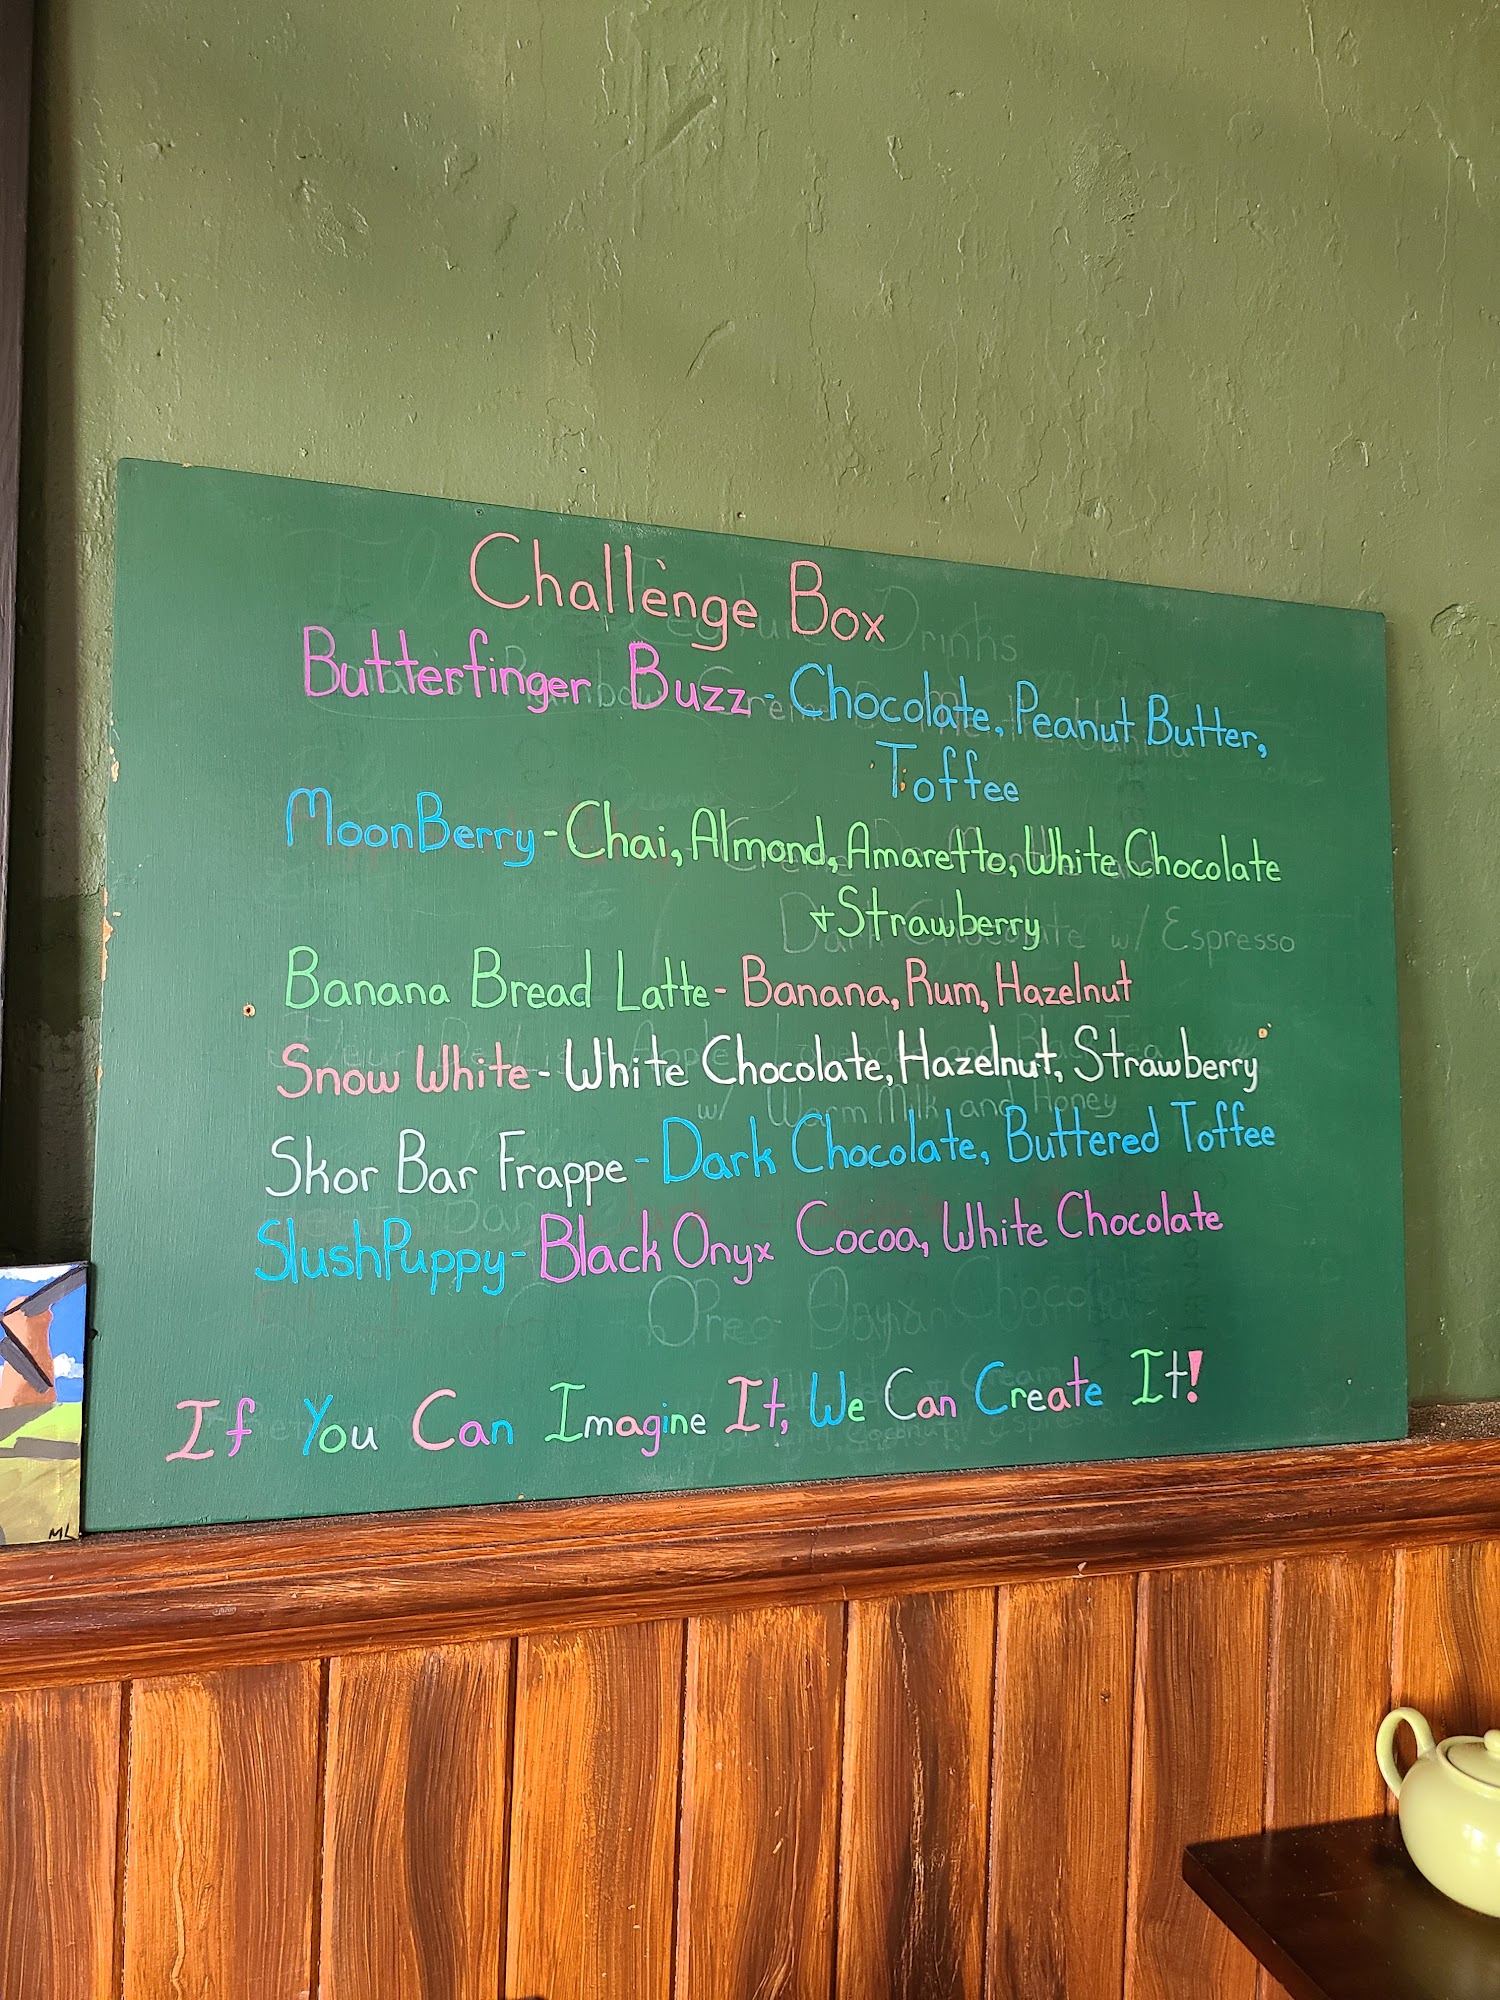 Challenge Box
Butterfinger Buzz - Chocolate, Peanut Butter,
Toffee
MoonBerry - Chai, Almond, Amaretto, White Chocolate
+ Strawberry
Banana Bread Latte - Banana, Rum, Hazelnut
Snow White - White Chocolate, Hazelnut, Strawberry
w/ Warm Milk and Honey
Skor Bar Frappe - Dark Chocolate, Buttered Toffee
SlushPuppy - Black Onyx Cocoa, White Chocolate
If You Can Imagine It, We Can Create It!
ML